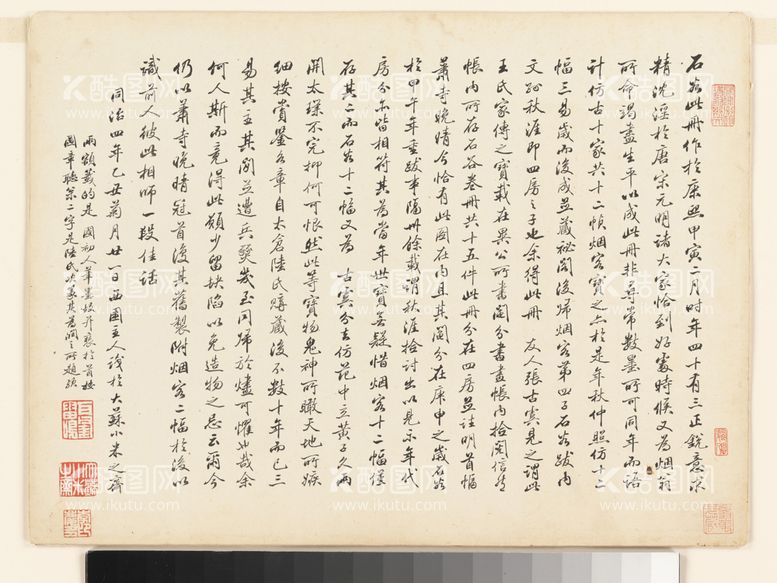 石谷此冊作於康熙甲寅二月時年四十有三正銳意求
精沈浸於唐宋元明諸大家恰到好處時候又為烟翁
所命竭盡生平以成此冊非尋常數墨所可同年而語
計仿古十家共十二幀烟客寶之亦於是年秋仲照仿十二
幅三易歲而後成並藏祕閣後歸烟客第四子石谷跋內
文孫秋涯即四房之子也余得此冊 友人張古寞見之謂此
王氏家傳之寶載在異公所書鬮分書畫帳內拾閱信然
帳內所存石谷卷冊共十五件此冊分在四房並註明首幅
蕭寺晚晴今恰有此圖在內且其鬮分在庚申之歲石谷
於甲午年重跋事隔卅餘載謂秋涯拾討出以見示年代
房分亦皆相符其為當年世寶無疑惜烟客十二幅僅
存其二而石谷十二幅又為 古寞分去仿范中立黃子久兩
開太璞不完抑何可恨然此等寶物鬼神所瞰天地所嫉
細按賞鑒各章自太倉陸氏歸藏後不數十年而已三
易其主其閣並遭兵燹幾至同歸於燼可懼也哉余
何人斯而竟得此願少留缺陷以免造物之忌云爾今
仍以蕭寺晚晴冠首復其舊製附烟客二幅於後以
識前人彼此相師一段佳話
同治四年乙丑菊月廿一日西圃主人識於大蘇小米之齋
兩額籤的是國初人筆墨故并裱於首按
國章聽泉二字是陸氏收藏其為潤之所題歟
酷图网
www.ikutu.com